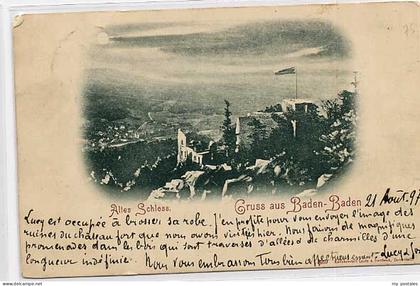 Altes Schloss.
Gruss aus Baden-Baden
21 Août 97
Lucy est occupée à brosser sa robe. J'en profite pour vous envoyer l'image des
ruines du château fort que nous avons visitées hier. Nous faisons de magnifiques
promenades dans le bois qui sont traversés d'allées de charmilles d'une
longueur indéfinie. Nous vous embrassons tous bien affectueusement